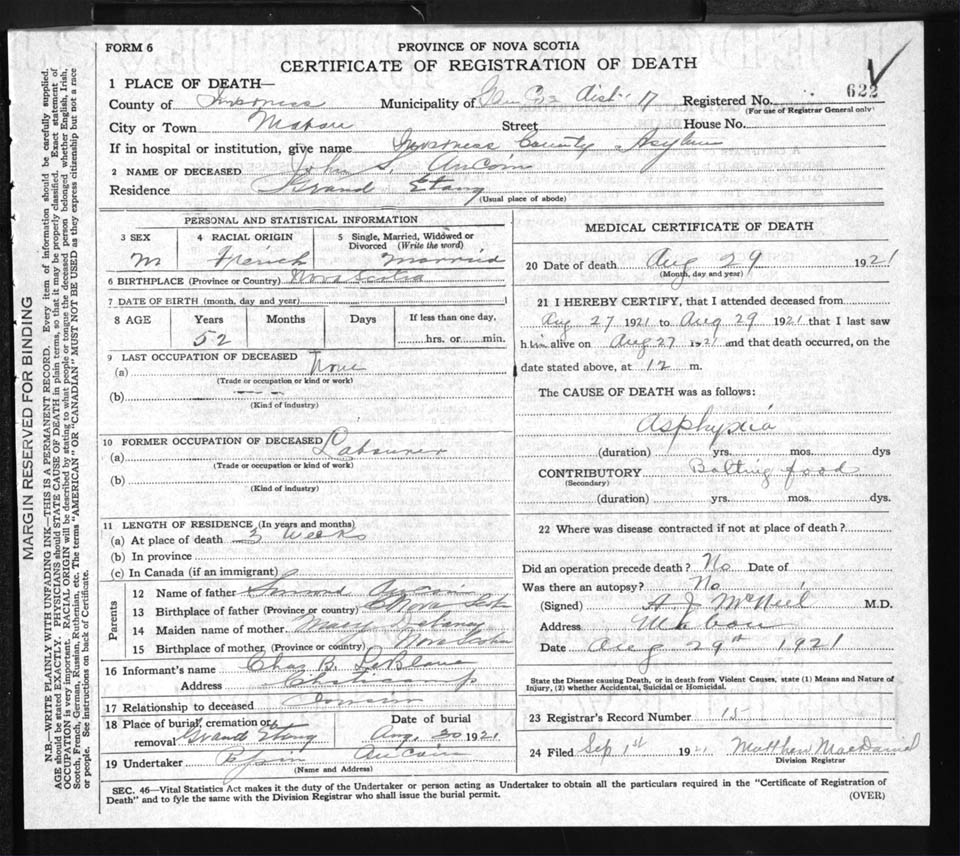 FORM 6
PROVINCE OF NOVA SCOTIA
CERTIFICATE OF REGISTRATION OF DEATH
1 PLACE OF DEATH—
622
County of Inverness Municipality of Dist. 17 Registered No.
(For use of Registrar General only)
City or Town Mabou Street House No.
If in hospital or institution, give name Inverness County Asylum
2 NAME OF DECEASED John S. AuCoin
Residence Grand Etang
(Usual place of abode)
PERSONAL AND STATISTICAL INFORMATION
3 SEX M
4 RACIAL ORIGIN French
5 Single, Married, Widowed or Divorced (Write the word) Married
6 BIRTHPLACE (Province or Country) Nova Scotia
7 DATE OF BIRTH (month, day and year)
8 AGE Years Months Days If less than one day,
52 hrs. or min.
9 LAST OCCUPATION OF DECEASED
(a) None
(Trade or occupation or kind or work)
(b)
(Kind of industry)
10 FORMER OCCUPATION OF DECEASED
(a) Labourer
(Trade or occupation or kind of work)
(b)
(Kind of industry)
11 LENGTH OF RESIDENCE (In years and months)
(a) At place of death 3 Weeks
(b) In province
(c) In Canada (if an immigrant)
Parents
12 Name of father AuCoin
13 Birthplace of father (Province or country) Nova Scotia
14 Maiden name of mother Mary
15 Birthplace of mother (Province or country) Nova Scotia
16 Informant's name Chas B. LeBlanc
Address Cheticamp
17 Relationship to deceased Cousin
18 Place of burial, cremation or removal Grand Etang
Date of burial Aug. 30 1921
19 Undertaker AuCoin
(Name and Address)
MEDICAL CERTIFICATE OF DEATH
20 Date of death Aug 29 1921
(Month, day and year)
21 I HEREBY CERTIFY, that I attended deceased from
Aug 27 1921 to Aug 29 1921 that I last saw
him alive on Aug 27 1921 and that death occurred, on the
date stated above, at 12 m.
The CAUSE OF DEATH was as follows:
Asphyxia
(duration) yrs. mos. dys
CONTRIBUTORY Bolting food
(Secondary)
(duration) yrs. mos. dys.
22 Where was disease contracted if not at place of death?
Did an operation precede death? No Date of
Was there an autopsy? No
(Signed) A J McNeil M.D.
Address Mabou
Date Aug 29th 1921
State the Disease causing Death, or in death from Violent Causes, state (1) Means and Nature of
Injury, (2) whether Accidental, Suicidal or Homicidal.
23 Registrar's Record Number 15
24 Filed Sep 1st 1921 Matthew MacDaniel
Division Registrar
SEC. 46—Vital Statistics Act makes it the duty of the Undertaker or person acting as Undertaker to obtain all the particulars required in the "Certificate of Registration of
Death" and to fyle the same with the Division Registrar who shall issue the burial permit.
(OVER)
MARGIN RESERVED FOR BINDING
N.B.—WRITE PLAINLY WITH UNFADING INK—THIS IS A PERMANENT RECORD. Every item of information should be carefully supplied.
AGE should be stated EXACTLY. PHYSICIANS should STATE CAUSE OF DEATH in plain terms, so that it may be properly classified. Exact statement of
OCCUPATION is very important. RACIAL ORIGIN will be described by stating to what people or tongue the deceased person belonged whether English, Irish,
Scotch, French, German, Russian, Ruthenian, etc. The terms "AMERICAN" OR "CANADIAN" MUST NOT BE USED as they express citizenship but not a race
or people. See instructions on back of Certificate.